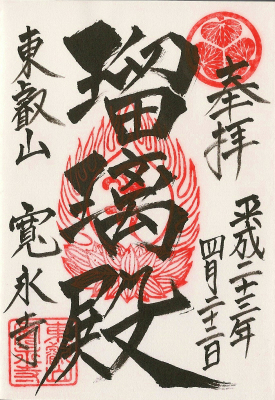 奉拝
平成二十三年
四月二十二日
瑠璃殿
東叡山 寛永寺